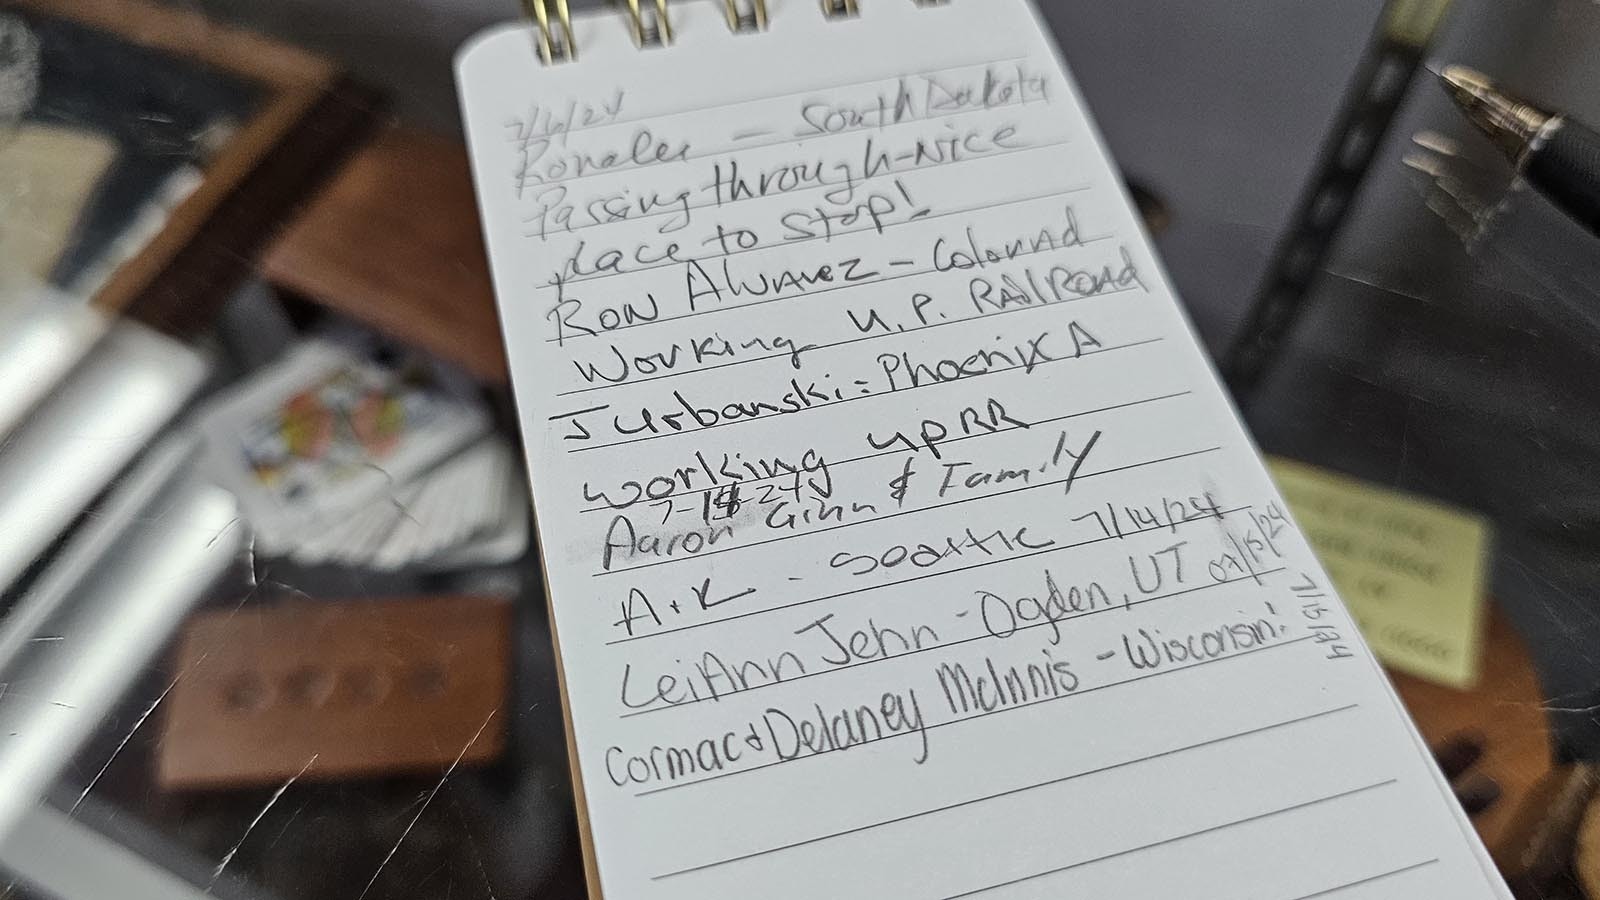 7/6/24
Ronalee - South Dakota
Passing through-Nice
place to stop!
Ron Alvarez - Colorad
Working U.P. RAilRoad
J Urbanski: Phoenix A
working up RR
7-13-24
Aaron Ginn & Family
A+K - Seattle 7/14/24
LeiAnn Jehn - Ogden, UT 07/15/24
Cormac & Delaney McInnis - Wisconsin! 7/15/24